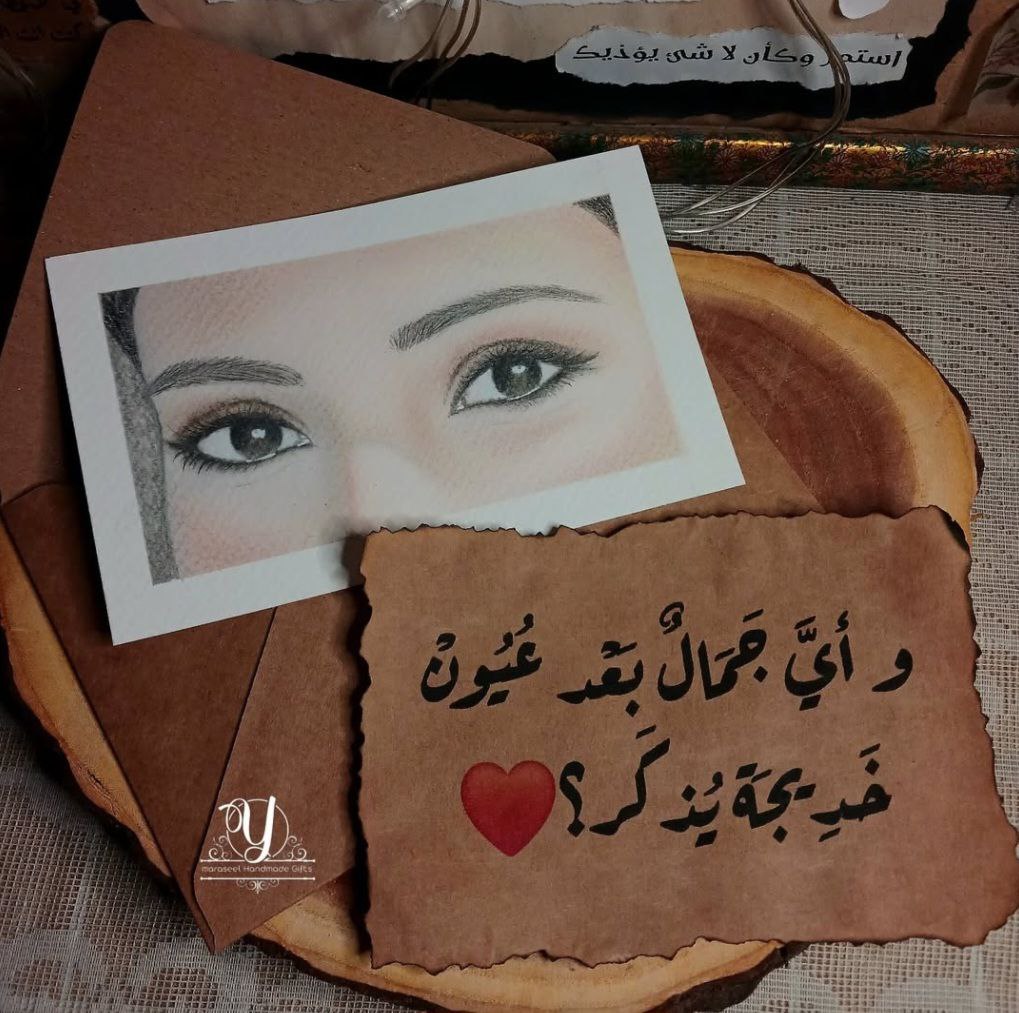 استمر وكأن لا شئ يؤذيك
و أيَّ جَمَالٌ بَعْد عُيُونْ
خَدِيجَة يُذكَر؟
Y
maraseel Handmade Gifts